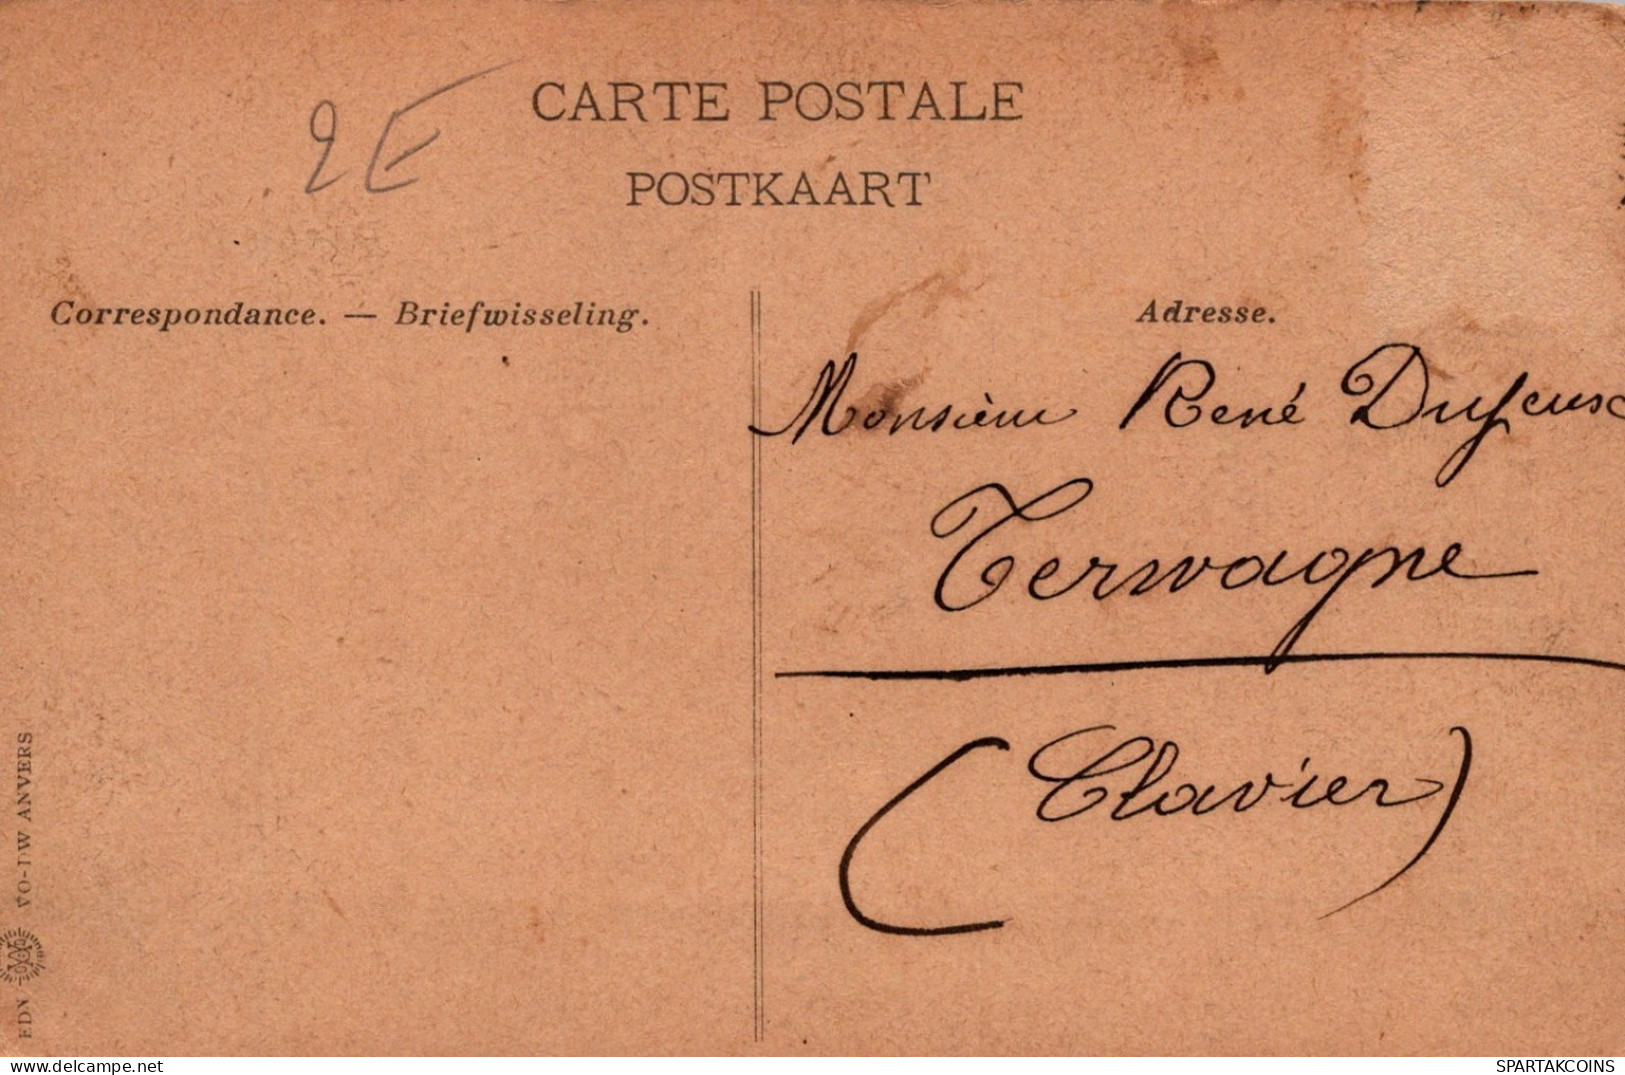 CARTE POSTALE
2E
POSTKAART
Correspondance. — Briefwisseling.
Adresse.
Monsieur René
Terwagne
(Clavier)
EDN VO-DW ANVERS
delcampe.net
SPARTAKCOINS